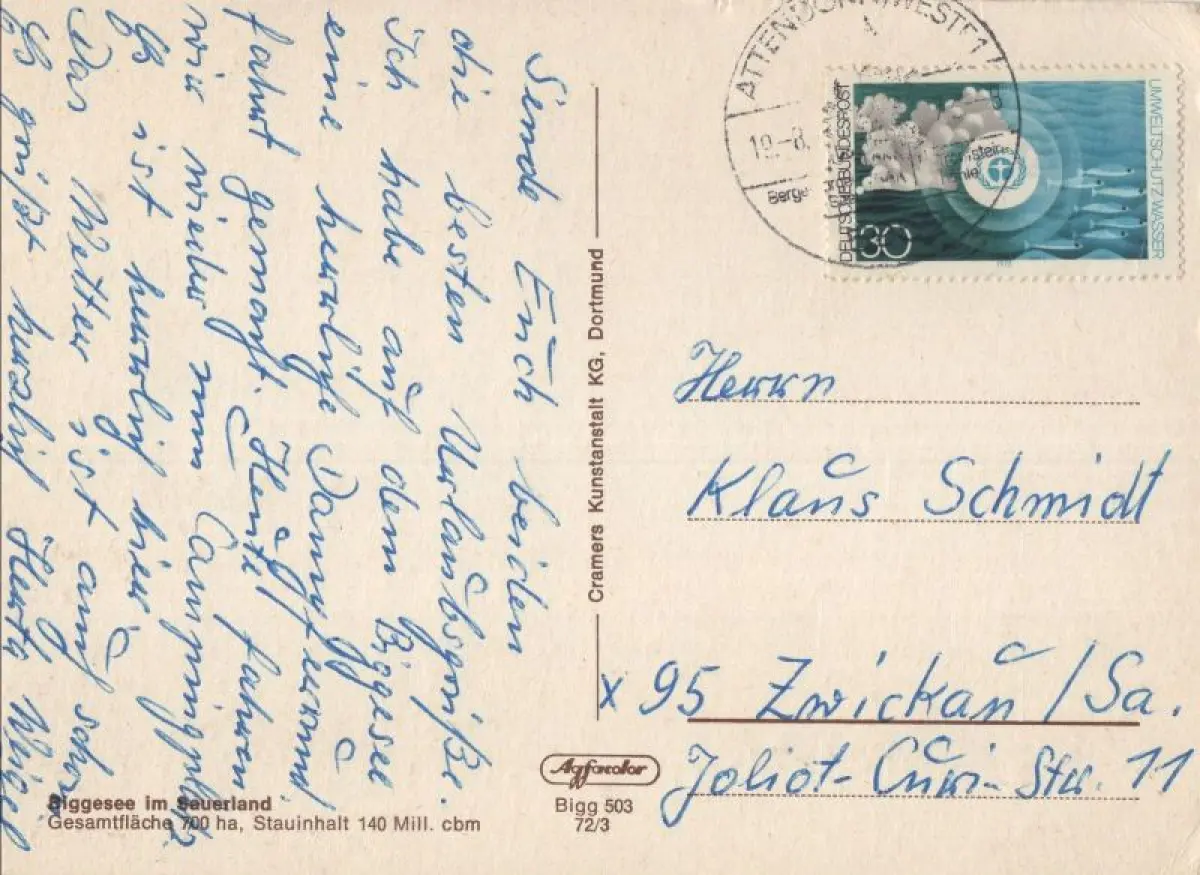 Sende Euch beiden
die besten Urlaubsgrüße.
Ich habe auf dem Biggesee
eine herrliche Dampferrund
fahrt gemacht. Heute fahren
wir wieder zum Campingplatz.
Es ist herrlich hier.
Das Wetter ist auch schön
Es grüßt herzlich Herta
Biggesee im Sauerland
Gesamtfläche 700 ha, Stauinhalt 140 Mill. cbm
Cramers Kunstanstalt KG, Dortmund
Agfacolor
Bigg 503
72/3
ATTENDORN, WESTF 1
19.-8.
DEUTSCHE BUNDESPOST
30
UMWELTSCHUTZ/WASSER
Herrn
Klaus Schmidt
x 95 Zwickau/Sa.
Joliot-Curi-Str. 11